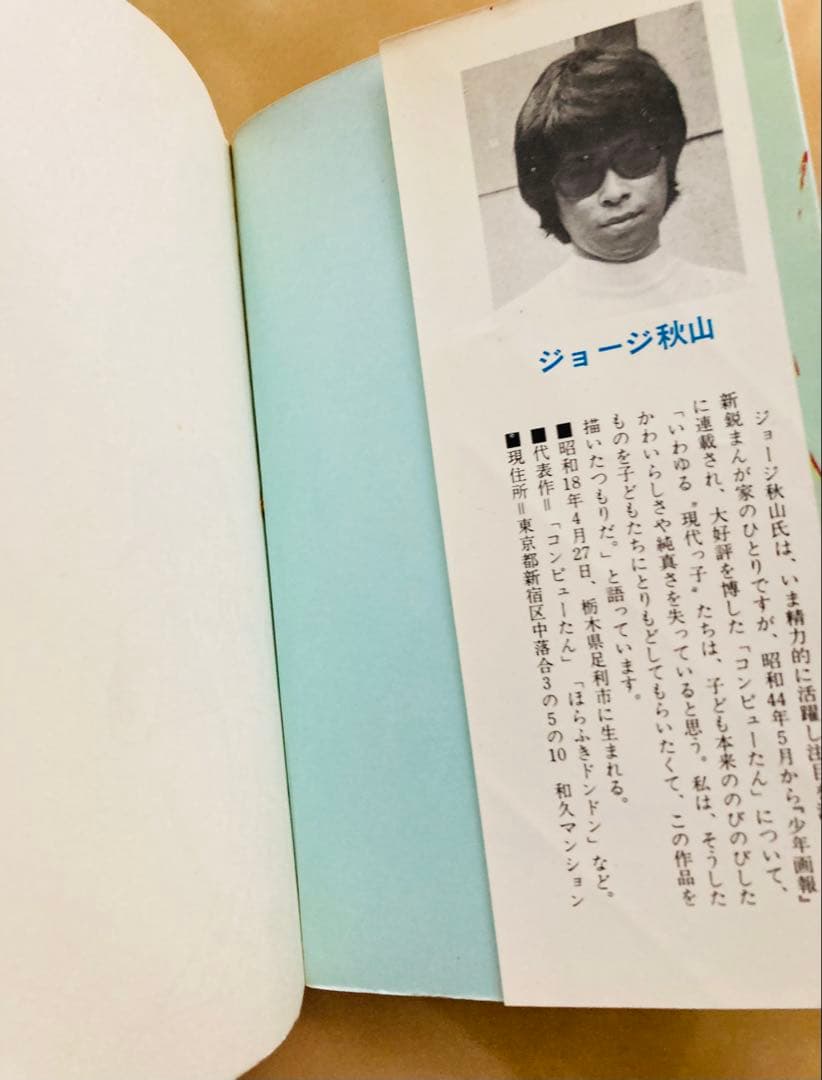 ジョージ秋山
ジョージ秋山氏は、いま精力的に活躍し注目を
新鋭まんが家のひとりですが、昭和44年5月から『少年画報』
に連載され、大好評を博した「コンピューたん」について、
「いわゆる〝現代っ子〟たちは、子ども本来ののびのびした
かわいらしさや純真さを失っていると思う。私は、そうした
ものを子どもたちにとりもどしてもらいたくて、この作品を
描いたつもりだ。」と語っています。
■昭和18年4月27日、栃木県足利市に生まれる。
■代表作＝「コンピューたん」「ほらふきドンドン」など。
■現住所＝東京都新宿区中落合3の5の10 和久マンション